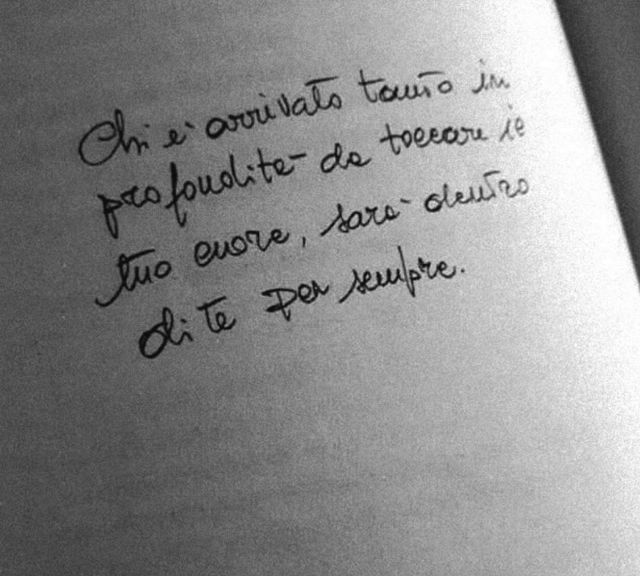 Chi è arrivato tanto in
profondità da toccare il
tuo cuore, sarà dentro
di te per sempre.